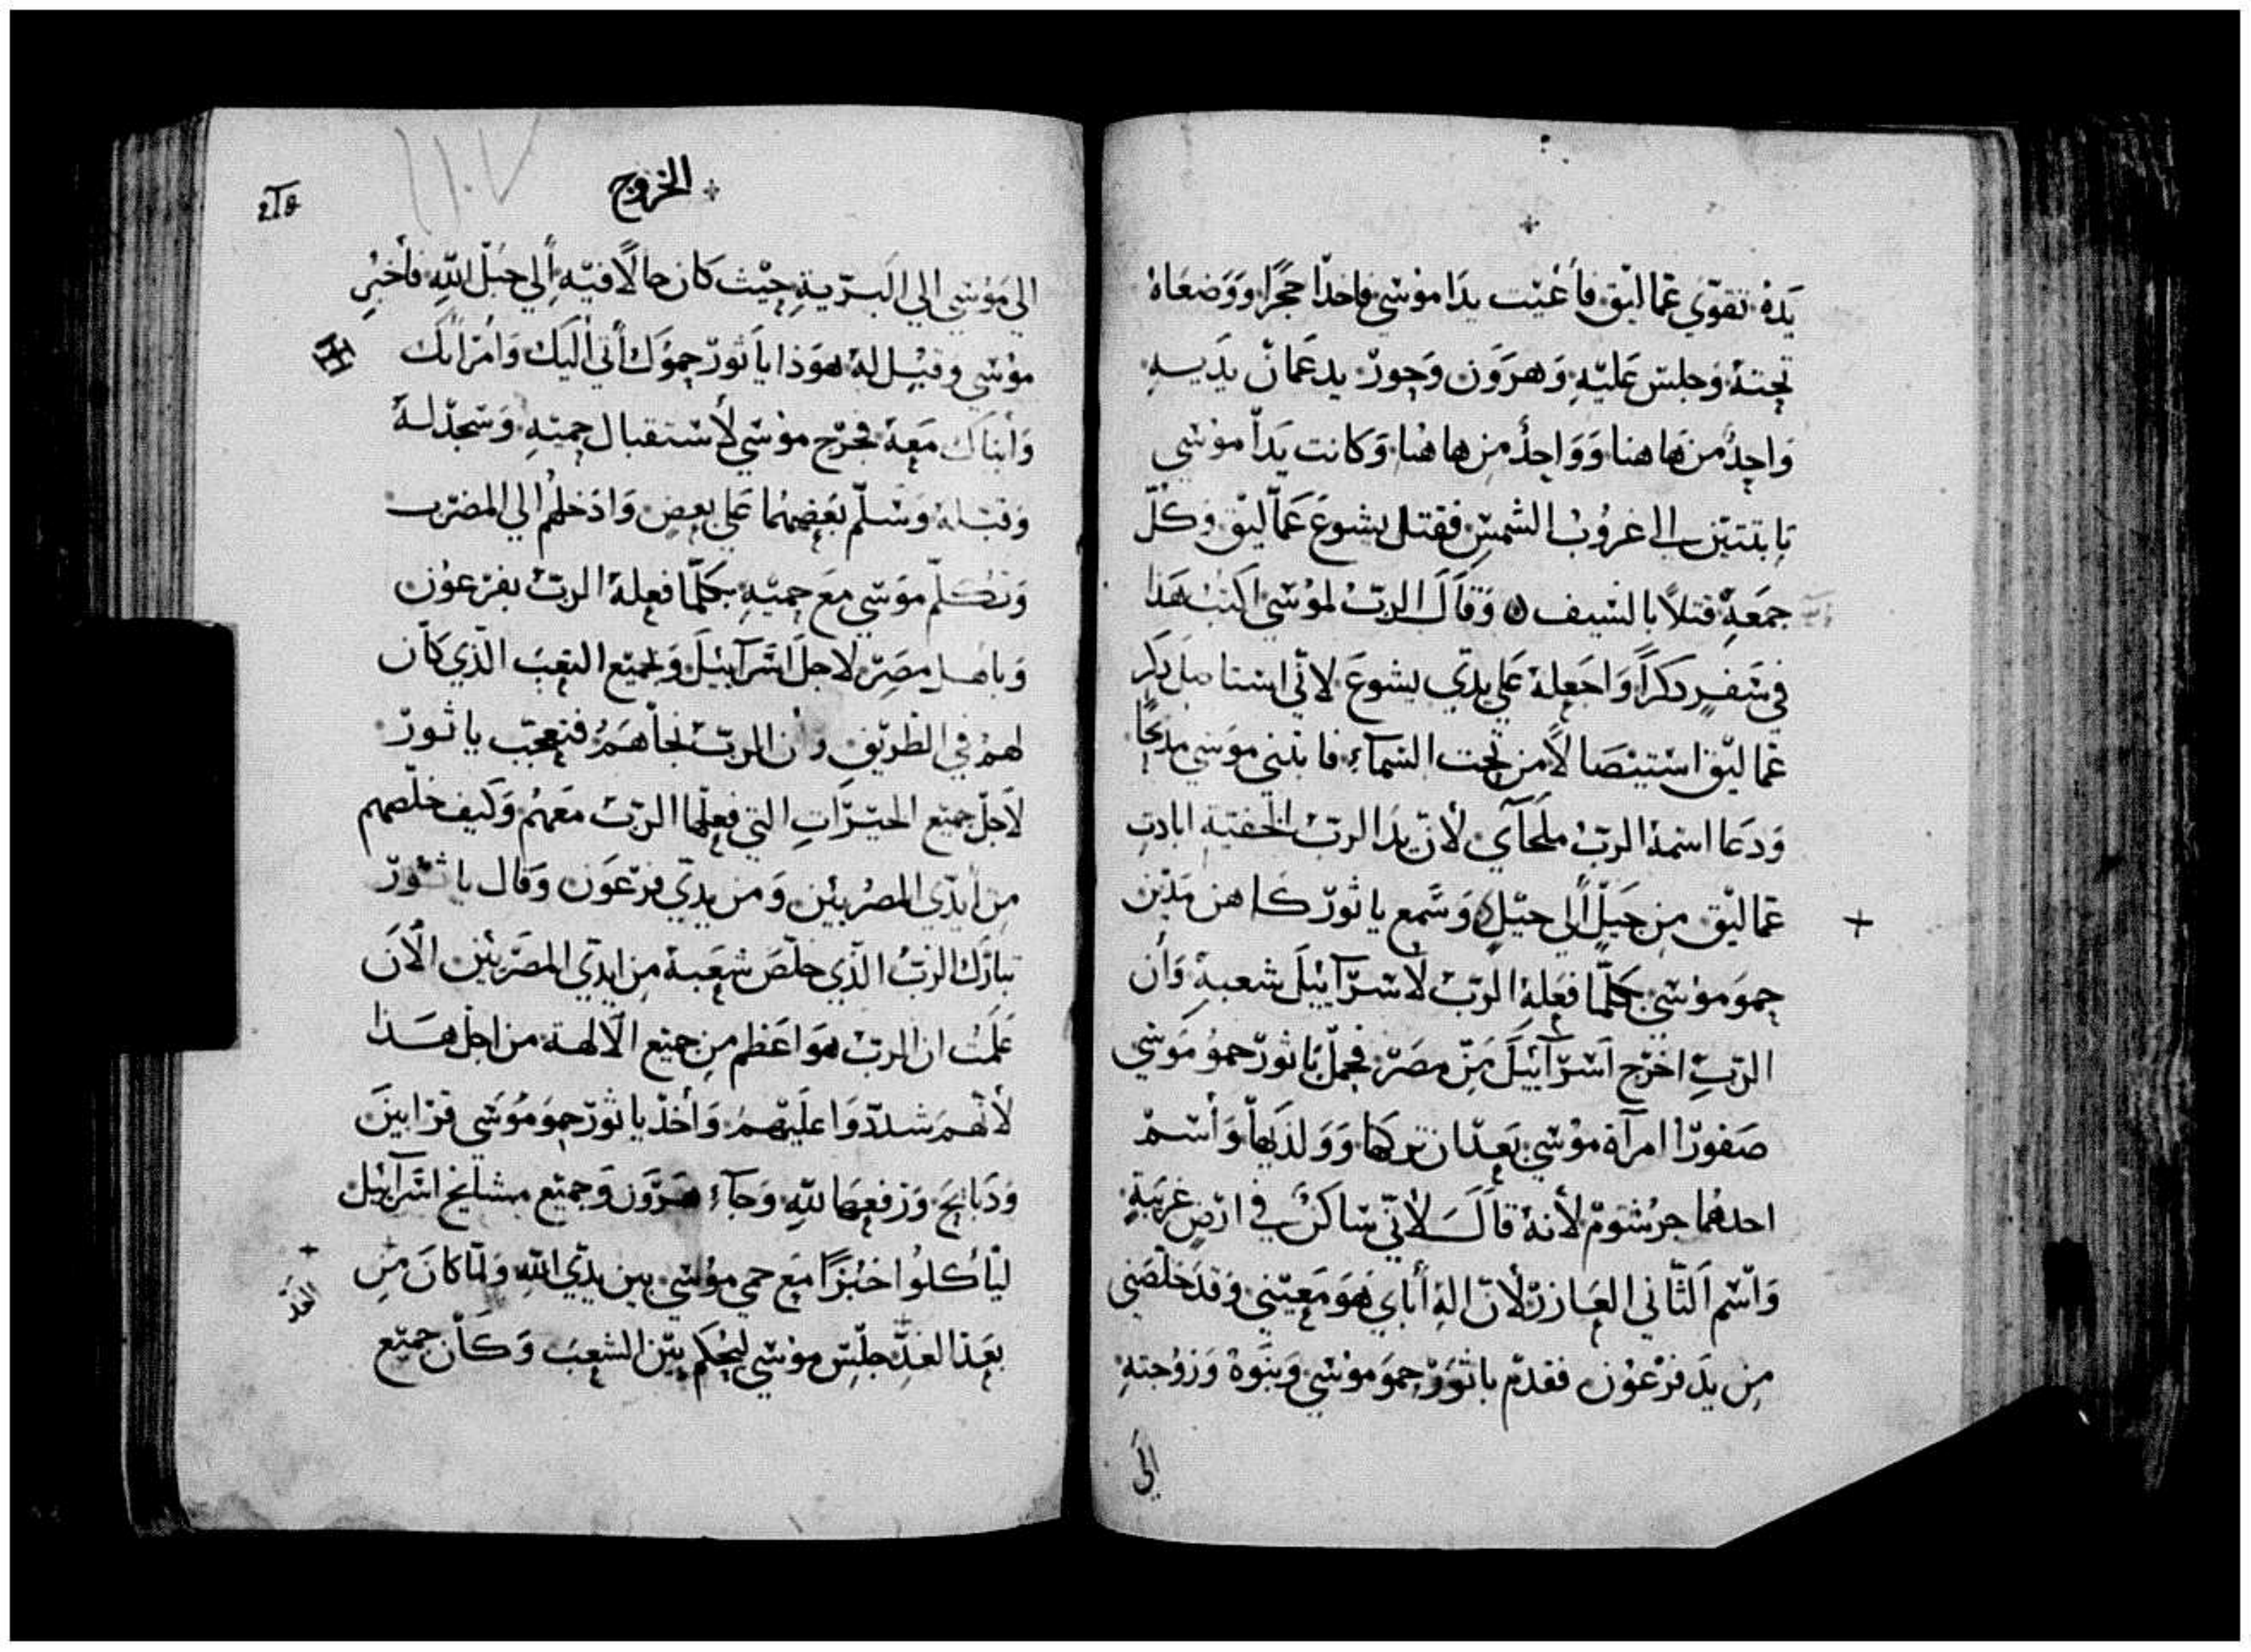 يَدهُ تقوّي عَماليْق فأعْيَت يدَا موْسَي فاخدَا حجَرًا ووَضعَاهُ
تحتهُ وَجلسَ عَليْهِ وَهرَوَن وَحور يدعَمان يدَيه
وَاحدٌ من هَاهنا وَوَاحدٌ من هاهُنا وَكانت يَدا موْسَي
تابتتين الي غرُوبْ الشمس فقتل يشوعَ عَماليْق وكلّ
جمَعهِ قتلاً بالسَيف وَقالَ الربْ لموْسَي اكتبْ هَذا
في سَفرٍ دكراً وَاجعلهُ عَلي يدَي يشوعَ لاني استاصل دكر
عَماليْق استيْصَالاً من تحت السَمآءِ فابتني موَسَي مدبحًا
وَدعَا اسْمهُ الربْ ملجآي لأن يدَ الربْ الخفيَة ابادت
عَماليْق مِن جيَلٍ الي جيْلٍ وَسَمع ياثورْ كاهن مَديْن
حموَ موْسَي بكلّما فعَلهُ الربْ لاسْرَآييْلَ شعبهِ وَأن
الربِ اخرْج اسْرَآييْلَ مِن مصَرْ فحملَ ياثورْ حموُ مَوسَي
صَفورَا امرآة موْسَي بَعدَ ان تركها وَوَلدَيها وَاسْمْ
احدهُما جرْشومْ لأنهُ قالَ لانيّ سَاكنٌ في ارْضٍ غريَبةٍ
وَاسْم الثَاني العَازرْ لأنّ الهِ أباي هَوَ مَعيْني وَقدْ خلّصَني
مِن يدَ فرْعوْن فقدمْ ياثوَرْ حموَ موْسَي وَبنوَهُ وَزوْجتهِ
الَي
الخروج
الي موْسَي الي البَريةِ حيْث كان حالاً فيْهِ الي جبَلْ اللهِ فأخبْرِ
موْسَي وقيْل لهُ هوَذا ياَثورْ حموَك أتي اليَك وَامْرَاتك
وَابناك مَعهُ فخرْج موْسَي لأسْتقبال حميْهِ وَسَجدْ لهُ
وَقبَلهُ وَسَلّم بَعضهُما عَلي بعضٍ وَادَخلهُم الي المضرَب
وَتكلّم موَسَي مَع حميْهِ بكلّما فعلهُ الربْ بفرْعوْن
وَباهل مصَرْ لاجلَ اسْرَآييْلَ وَلجميْع التعبَ الذَي كان
لهمْ في الطرْيق وأن الربْ نجأهَمُ فتعجّب ياثورْ
لأجلْ جميْع الخيْرَاتِ التي فعلها الربْ معَهمُ وَكيف خلّصهم
مِن أيدَي المصْرييْن وَمن يدَي فرْعوَن وَقال ياثورْ
تبارَك الربُ الذَي خلّصَ شعَبهُ مِن ايدَي المصَرييْن الآنَ
عَلمْتُ ان الربْ هوَ اعَظم مِن جميْع الآلهة من اجل هَذا
لأنهمَ شددّوَا عليْهمُ وَأخذْ ياثورْ حموَ موُسَي قرَابينَ
وَدَبايحَ وَرَفعهَا للهِ وَجآءَ هَرَوَن وَجميْع مشايخ اسْرَآييْل
ليَأكلوُا خبْزًا مَع حمي موْسَي بين يدَي اللهِ وَلمّا كانَ مِن
بعَد الغدِ جلسْ موْسَي ليْحكم بيْن الشعبَ وَكأن جميْع